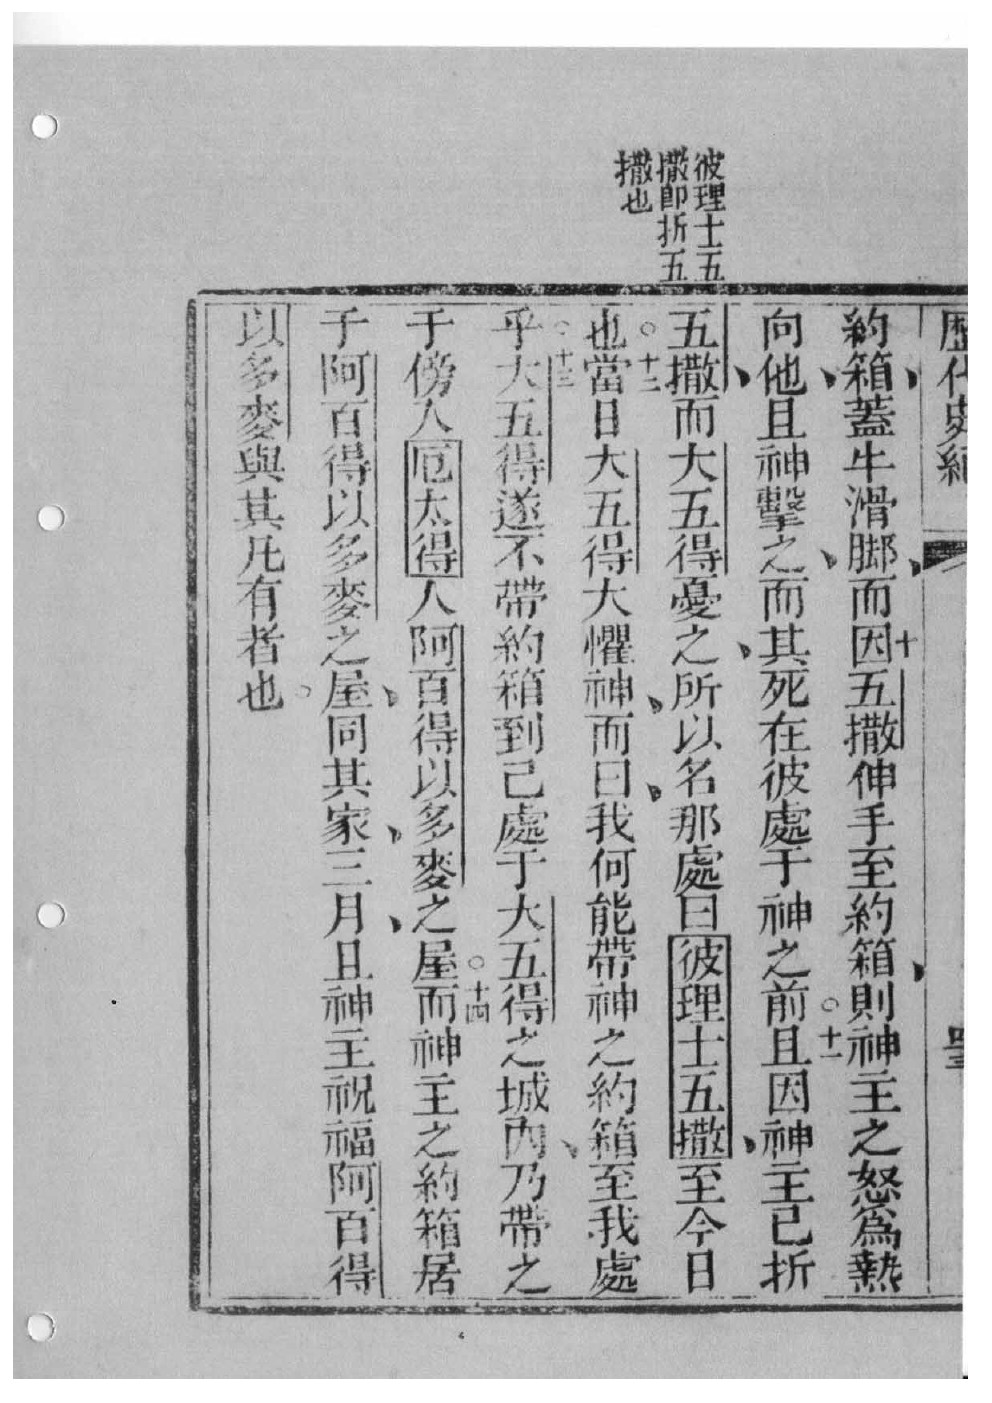 彼理士五
撒即折五
撒也
歷代史紀
約箱蓋牛滑脚而因十五撒伸手至約箱則神主之怒為熱
向他且神擊之而其死在彼處于神之前○十一且因神主已折
五撒而大五得憂之所以名那處曰彼理士五撒至今日
也○十二當日大五得大懼神而曰我何能帶神之約箱至我處
乎○十三大五得遂不帶約箱到己處于大五得之城內乃帶之
于傍人厄太得人阿百得以多麥之屋○十四而神主之約箱居
于阿百得以多麥之屋同其家三月且神主祝福阿百得
以多麥與其凡有者也○